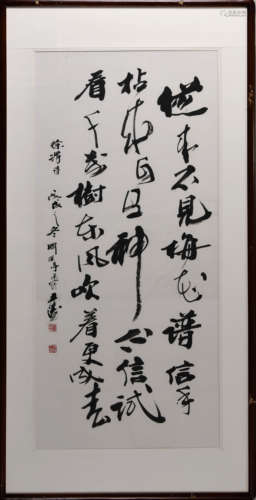 從来不見梅花譜信手
拈来自有神不信試
看千萬樹東風吹着更成春
徐渭詩